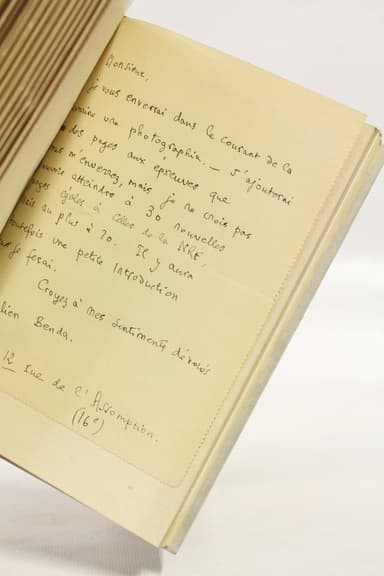 Monsieur,
je vous enverrai dans le courant de la
une photographie. — J'ajouterai
des pages aux épreuves que
m'enverrez, mais je ne crois pas
atteindre à 30 nouvelles
égales à celles de la NRF,
au plus à 20. Il y aura
une petite introduction
je ferai.
Croyez à mes sentiments dévoués
lien Benda.
12 rue de l'Assomption.
(16e)